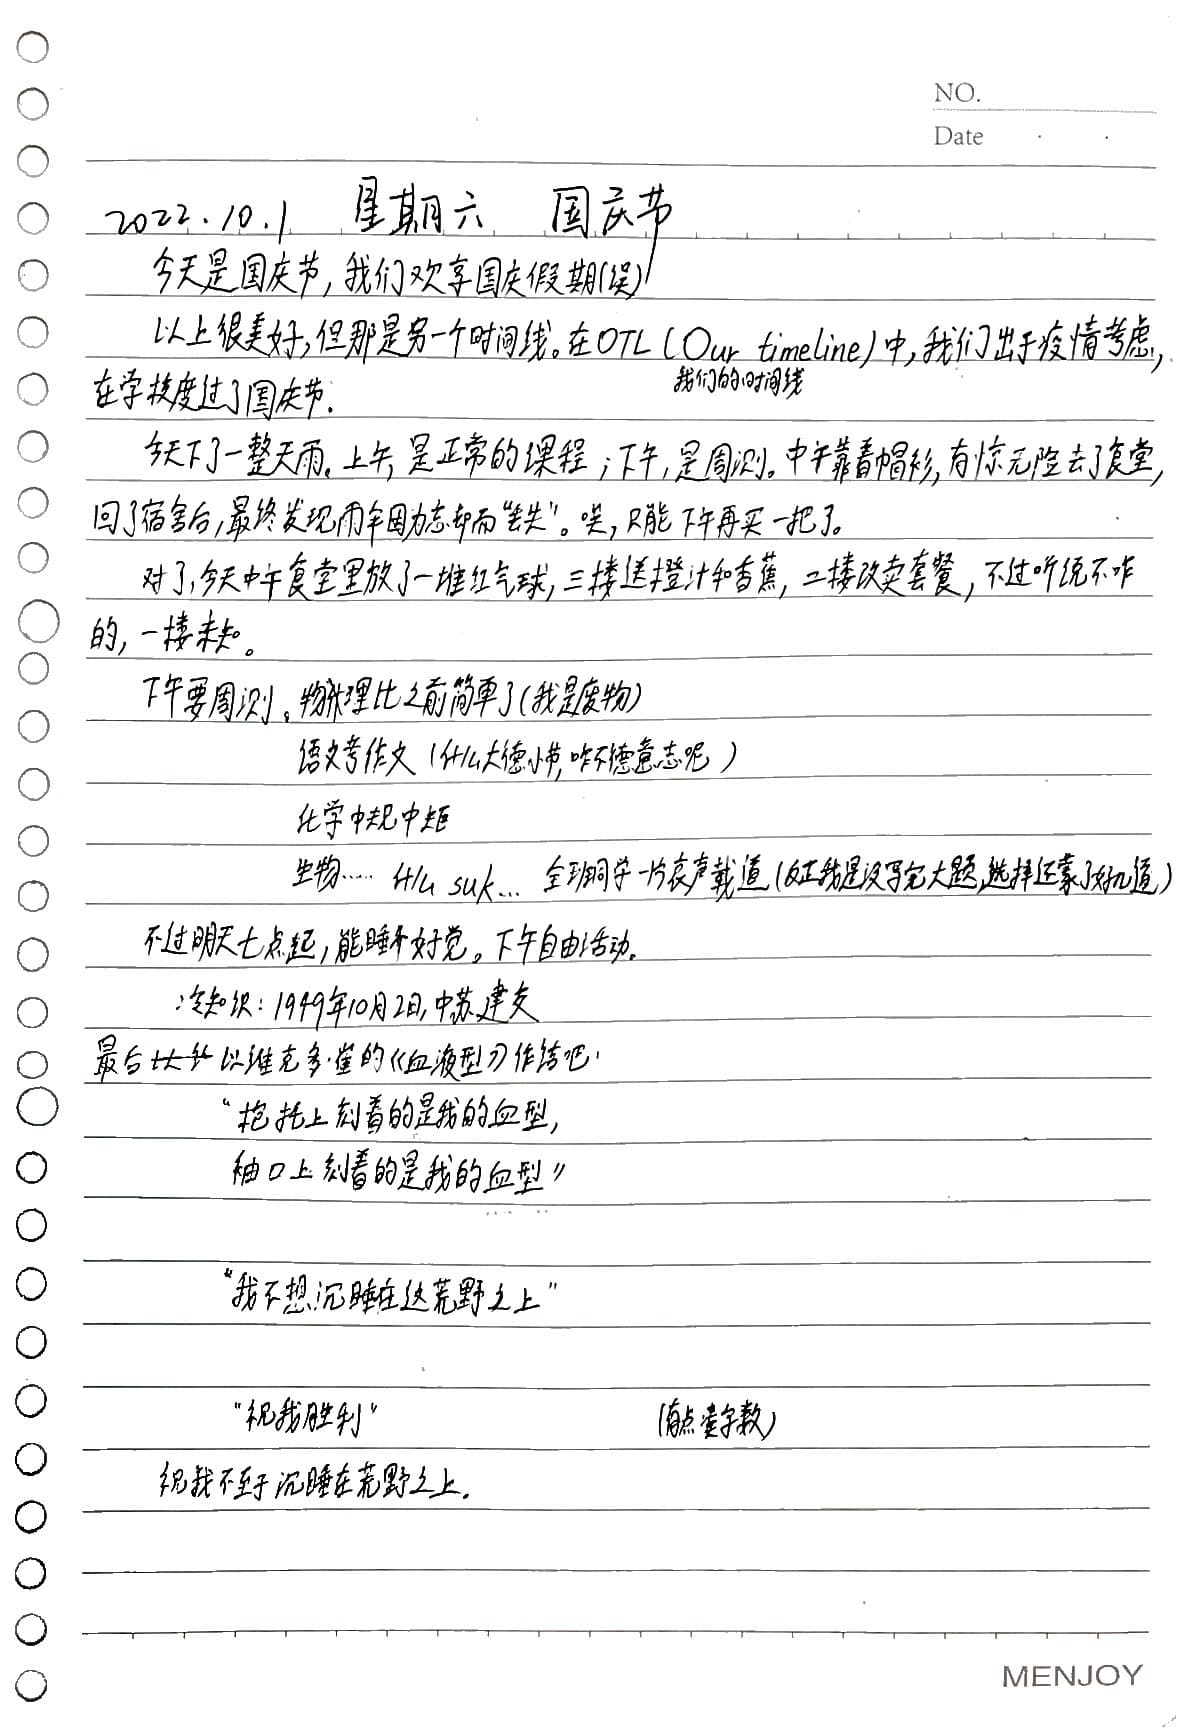 NO.
Date
2022.10.1 星期六 国庆节
今天是国庆节,我们欢享国庆假期(误)
以上很美好,但那是另一个时间线。在OTL(Our timeline)中,我们出于疫情考虑,
我们的时间线
在学校度过了国庆节.
今天下了一整天雨。上午,是正常的课程;下午,是周测。中午靠着帽衫,有惊无险去了食堂,
回了宿舍后,最终发现雨伞因为忘却而"丢失"。唉,只能下午再买一把了。
对了,今天中午食堂里放了一堆红气球,三楼送橙汁和香蕉,二楼改卖套餐,不过听说不咋
的,一楼未知。
下午要周测。物理比之前简单了(我是废物)
语文考作文(什么大德小节,咋不德意志呢)
化学中规中矩
生物..... 什么 suk... 全班同学一片哀声载道(反正我是没写完大题,选择还蒙了好几道)
不过明天七点起,能睡个好觉。下午自由活动.
冷知识:1949年10月2日,中苏建交
最后 以维克多·崔的《血液型》作结吧.
"抱托上刻着的是我的血型,
袖口上刻着的是我的血型"
"我不想沉睡在这荒野之上"
"祝我胜利" (有点凑字数)
祝我不至于沉睡在荒野之上.
MENJOY